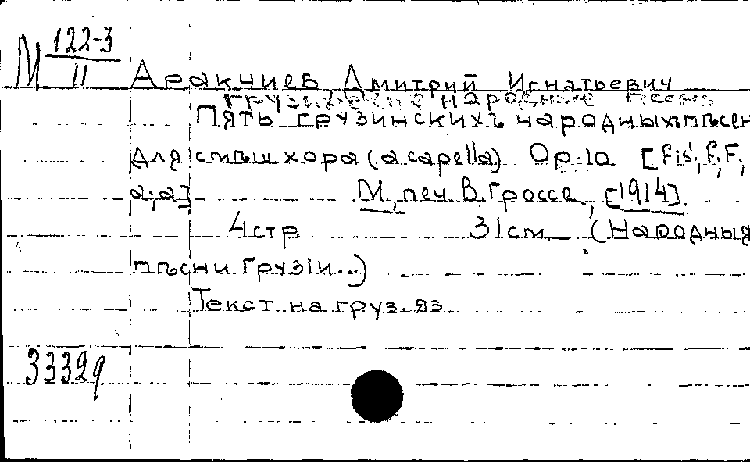 М 122-3
11
Аракчиев, Дмитрий Игнатьевич
Грузинские народные песни
Пять грузинскихъ народныхъ пѣсен
для смѣш хора (a capella) Op. 10 [fis, f, F,
a, a]. М, печ. В. Гроссе, [1914].
4 стр 31 см (Народныя
пѣсни Грузіи...)
Текст на груз. яз.
33329